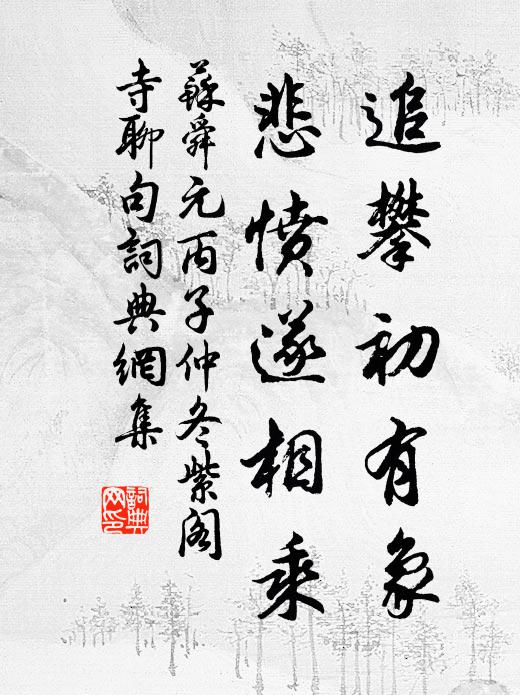 追攀初有象
悲愤遂相乘
蘇舜元丙子仲冬紫阁
寺聊句詞典網集
詞典
网印